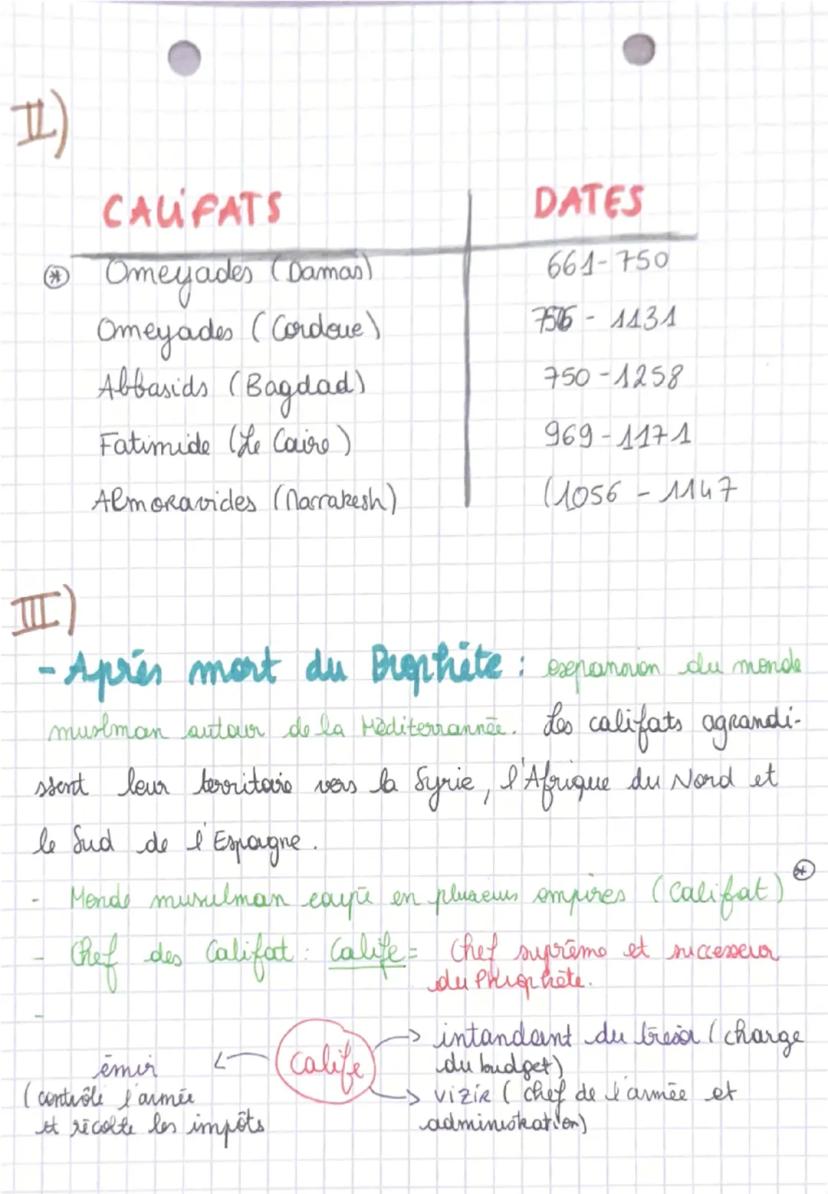 II)
CALIFATS DATES
* Omeyades (Damas) 661-750
Omeyades (Cordoue) 756 - 1131
Abbasids (Bagdad) 750-1258
Fatimide (Le Caire) 969-1171
Almoravides (Marrakesh) (1056 - 1147
III)
- Après mort du Prophète : expansion du monde
muslman autour de la Méditerrannée. Les califats agrandi-
ssent leur territoire vers la Syrie, l'Afrique du Nord et
le Sud de l'Espagne.
- Monde musulman coupé en plusieurs empires (Califat) *
- Chef des Califat : Calife = Chef suprême et successeur
du Prophète.
-
émir
(contrôle l'armée
et récolte les impôts
calife
intandant du trésor (charge
du budget)
vizir (chef de l'armée et
administration)